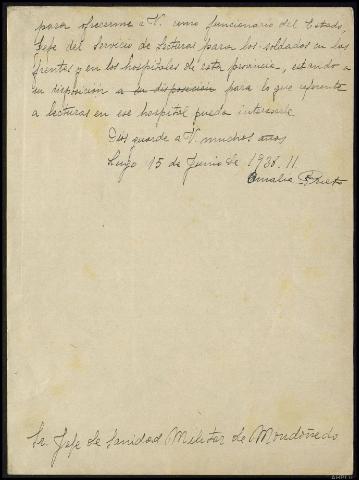 para ofrecerme a V. como funcionario del Estado,
Jefe del Servicio de Lecturas para los soldados en los
frentes y en los hospitales de esta provincia, estando a
su disposición a su disposición para lo que referente
a lecturas en ese hospital pueda interesarle
Dios guarde a V. muchos años
Lugo 15 de Junio de 1938. II
Amalia Prieto
Sr. Jefe de Sanidad Militar de Mondoñedo